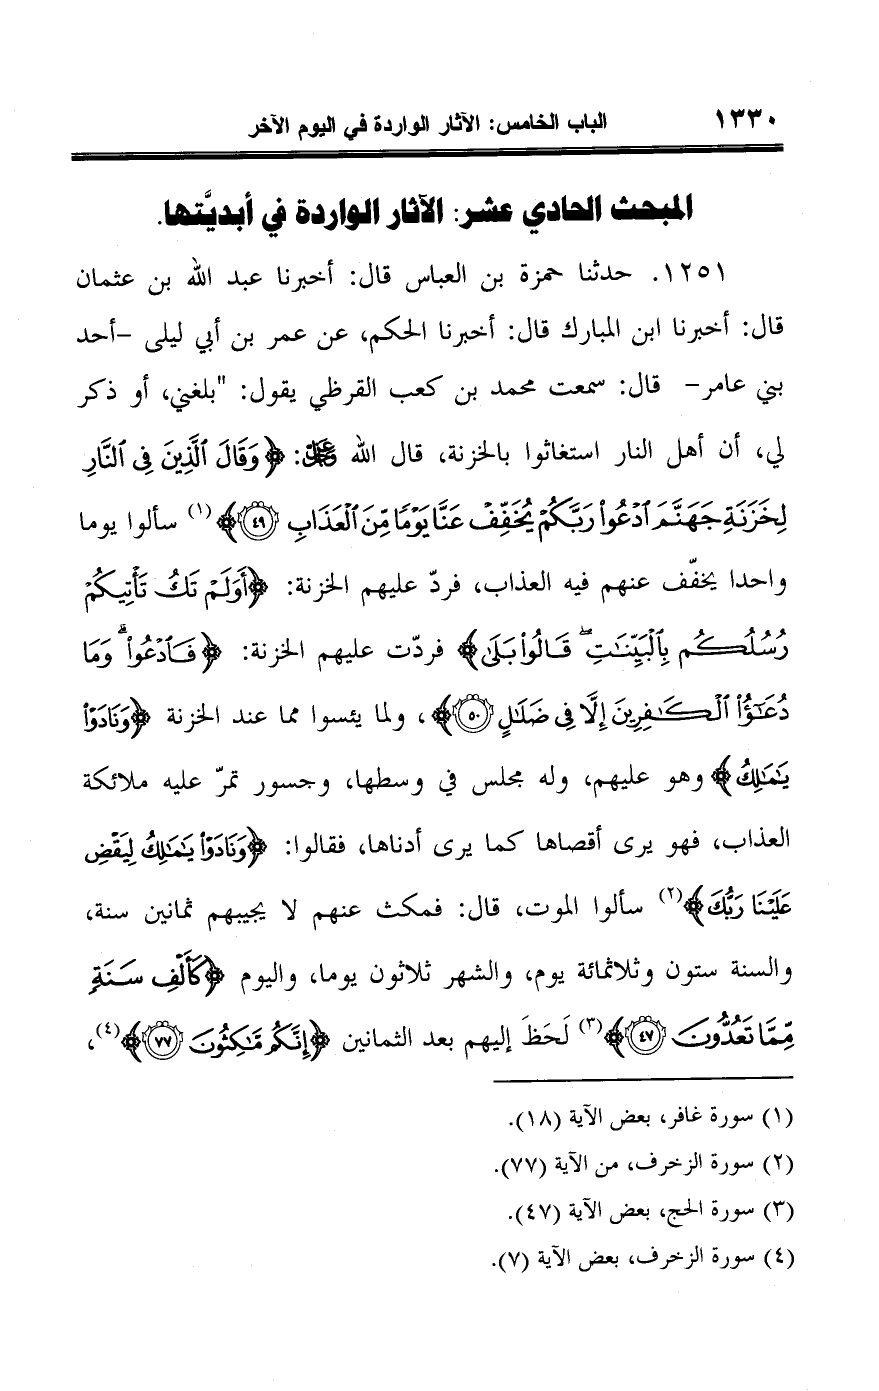 ١٣٣٠ الباب الخامس: الآثار الواردة في اليوم الآخر
المبحث الحادي عشر: الآثار الواردة في أبديَّتها.
١٢٥١. حدثنا حمزة بن العباس قال: أخبرنا عبد الله بن عثمان
قال: أخبرنا ابن المبارك قال: أخبرنا الحكم، عن عمر بن أبي ليلى –أحد
بني عامر– قال: سمعت محمد بن كعب القرظي يقول: "بلغني، أو ذكر
لي، أن أهل النار استغاثوا بالخزنة، قال الله ﷿: ﴿وَقَالَ ٱلَّذِينَ فِى ٱلنَّارِ
لِخَزَنَةِ جَهَنَّمَ ٱدْعُوا۟ رَبَّكُمْ يُخَفِّفْ عَنَّا يَوْمًا مِّنَ ٱلْعَذَابِ ٤٩﴾(١) سألوا يوما
واحدا يخفّف عنهم فيه العذاب، فردّ عليهم الخزنة: ﴿أَوَلَمْ تَكُ تَأْتِيكُمْ
رُسُلُكُم بِٱلْبَيِّنَـٰتِ ۖ قَالُوا۟ بَلَىٰ﴾ فردّت عليهم الخزنة: ﴿فَٱدْعُوا۟ ۗ وَمَا
دُعَـٰٓؤُا۟ ٱلْكَـٰفِرِينَ إِلَّا فِى ضَلَـٰلٍ ٥٠﴾، ولما يئسوا مما عند الخزنة ﴿وَنَادَوْا۟
يَـٰمَـٰلِكُ﴾ وهو عليهم، وله مجلس في وسطها، وجسور تمرّ عليه ملائكة
العذاب، فهو يرى أقصاها كما يرى أدناها، فقالوا: ﴿وَنَادَوْا۟ يَـٰمَـٰلِكُ لِيَقْضِ
عَلَيْنَا رَبُّكَ﴾(٢) سألوا الموت، قال: فمكث عنهم لا يجيبهم ثمانين سنة،
والسنة ستون وثلاثمائة يوم، والشهر ثلاثون يوما، واليوم ﴿كَأَلْفِ سَنَةٍ
مِّمَّا تَعُدُّونَ ٤٧﴾(٣) لَحَظَ إليهم بعد الثمانين ﴿إِنَّكُم مَّـٰكِثُونَ ٧٧﴾(٤)،
(١) سورة غافر، بعض الآية (١٨).
(٢) سورة الزخرف، من الآية (٧٧).
(٣) سورة الحج، بعض الآية (٤٧).
(٤) سورة الزخرف، بعض الآية (٧).